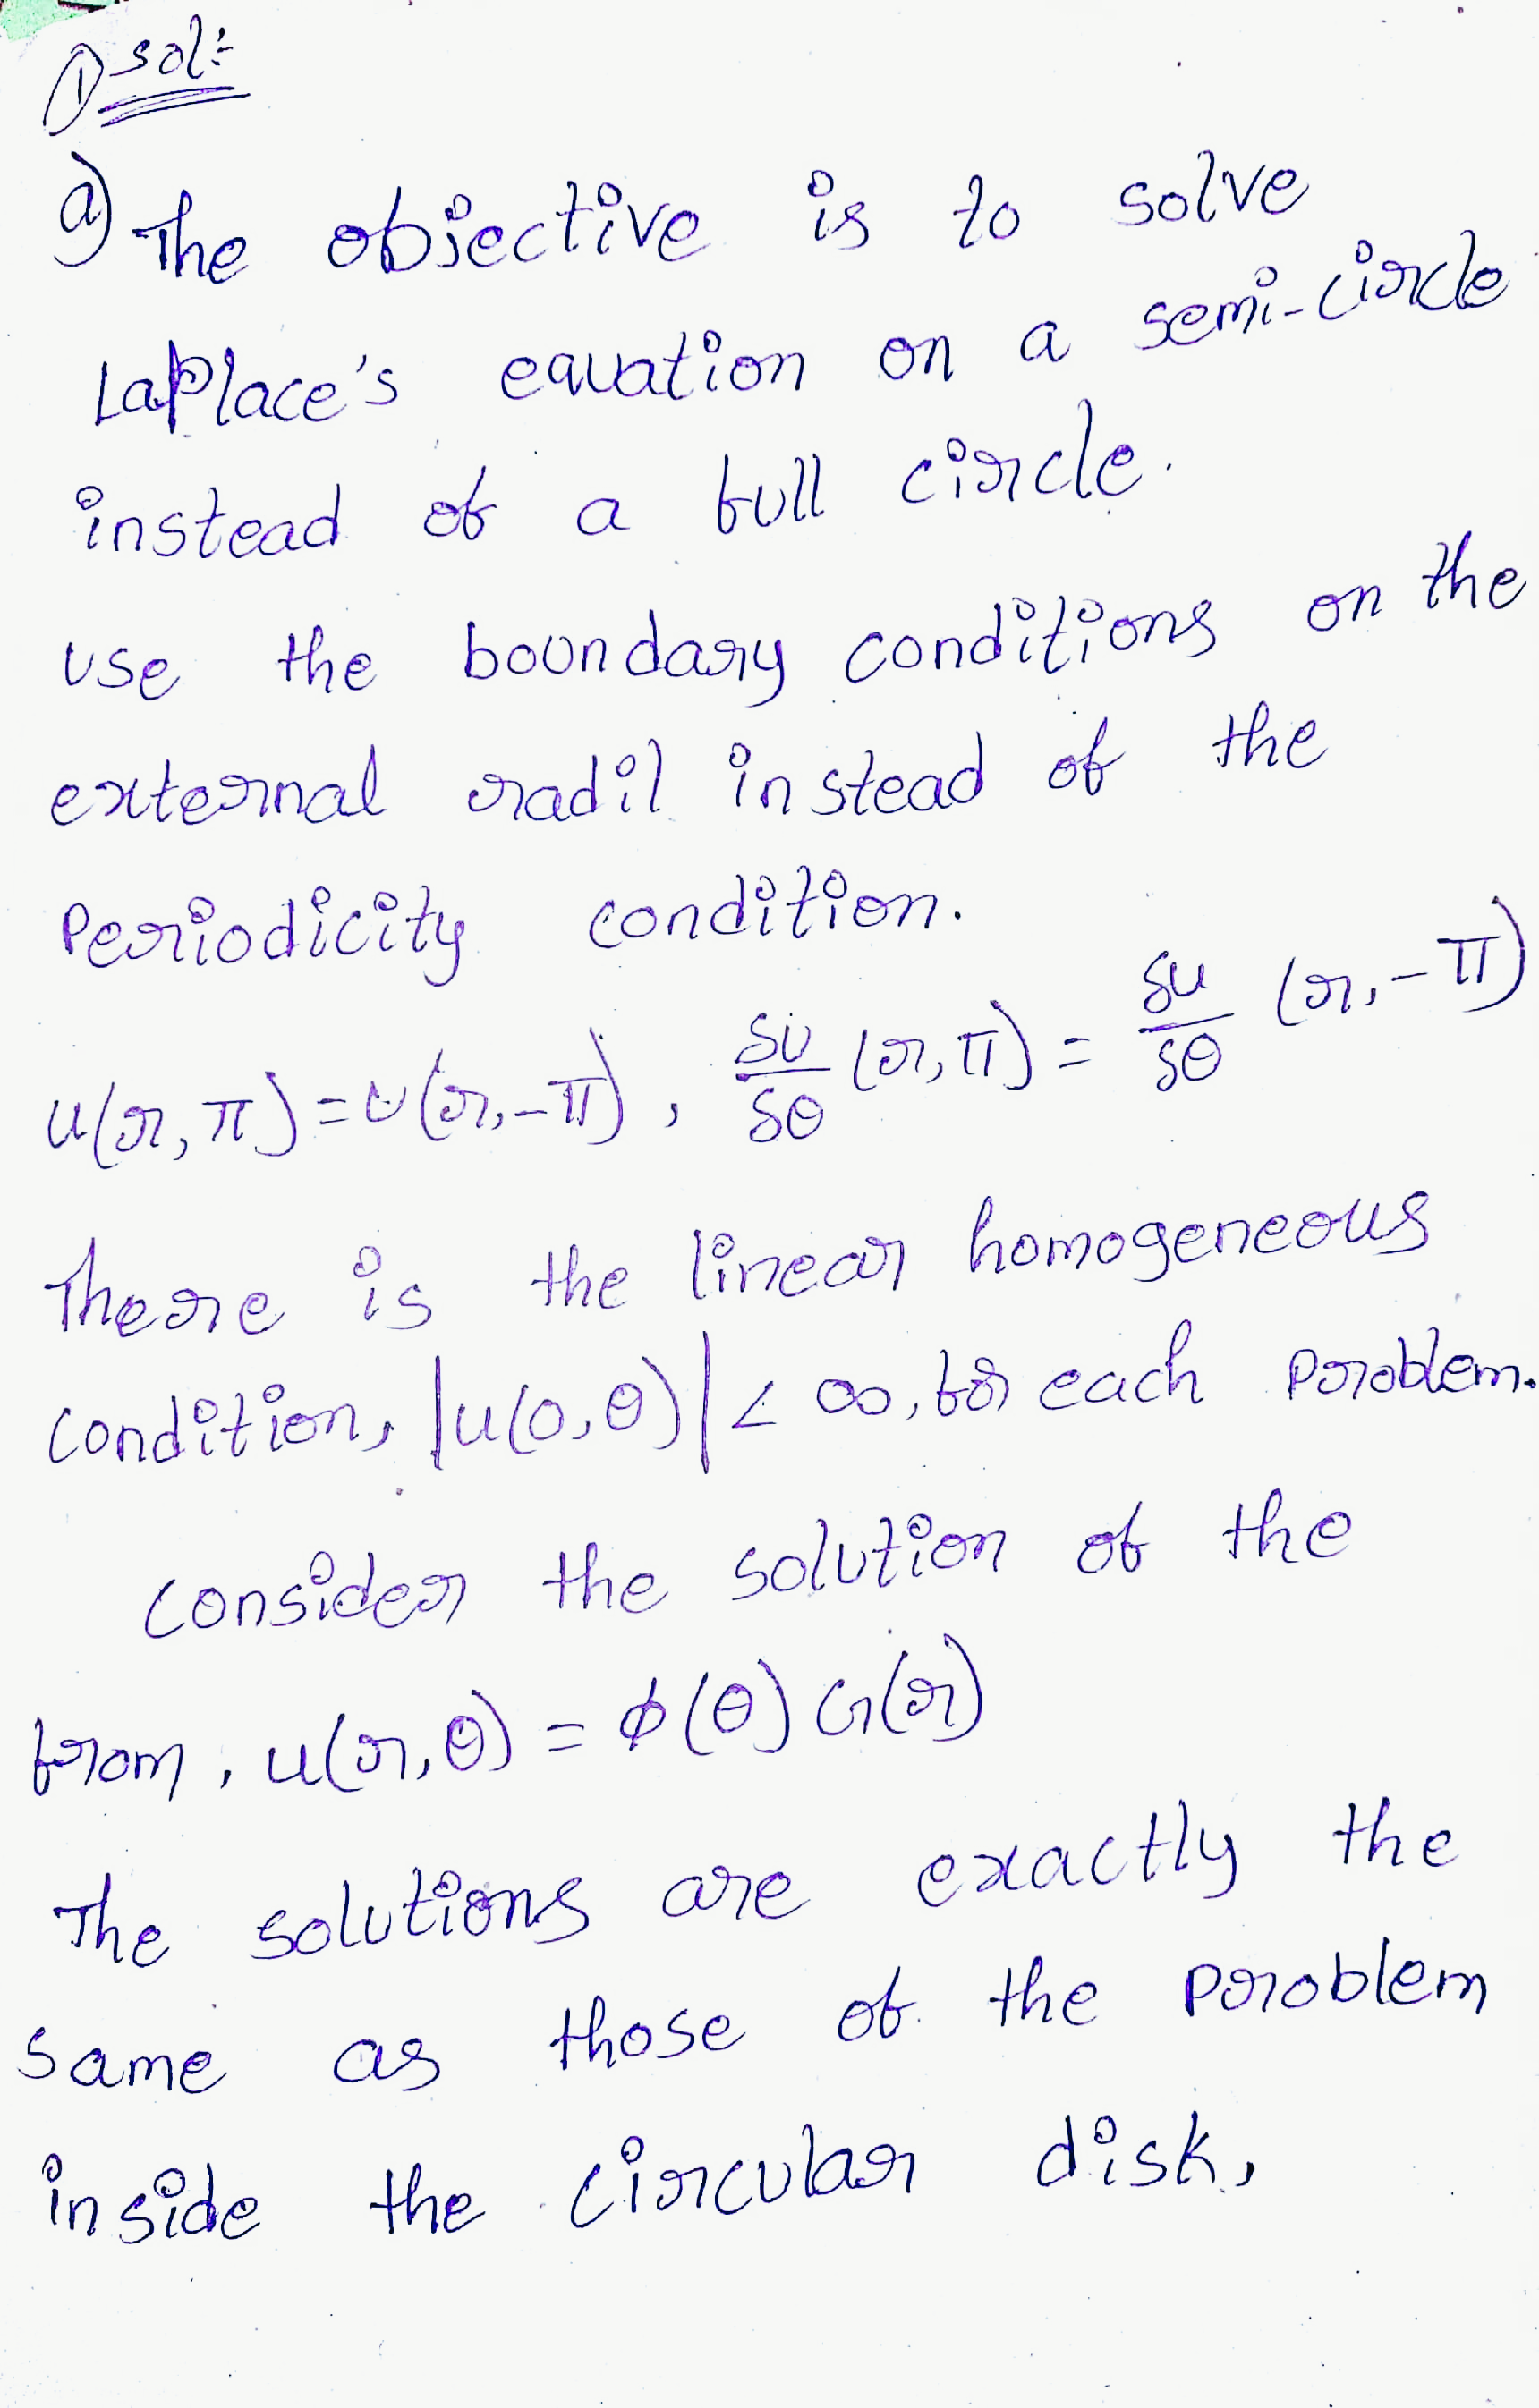 1) sol:
a) The objective is to solve
Laplace's equation on a semi-circle
instead of a full circle.
use the boundary conditions on the
external radil instead of the
Periodicity condition.
u(r, π) = u(r, -π), δu/δθ (r, π) = δu/δθ (r, -π)
There is the linear homogeneous
condition, |u(0, θ)| < ∞, for each Problem.
consider the solution of the
from, u(r, θ) = φ(θ) G(r)
The solutions are exactly the
same as those of the Problem
inside the circular disk,